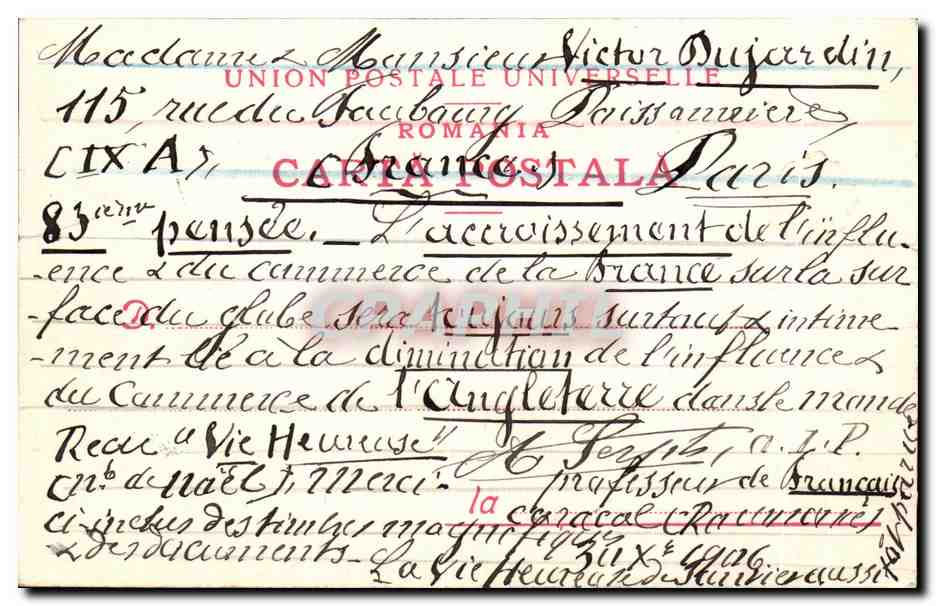 Madame & Monsieur Victor Dujardin,
UNION POSTALE UNIVERSELLE
115, rue du Faubourg Poissonnière
ROMANIA
(IX A), (France,) Paris.
CARTA POSTALĂ
83ième pensée. — L'accroissement de l'influ-
-ence & du commerce de la France sur la sur
-face du globe sera toujours surtout & intime
D.
-ment lié à la diminution de l'influence &
du Commerce de l'Angleterre dans le monde
Reçu "Vie Heureuse" A. a. I. P.
(nº de Noël), Merci - professeur de Français
la caracal (Roumanie)
ci-inclus des timbres magnifiques
& des documents - 1906
La Vie Heureuse de Janvier aussi